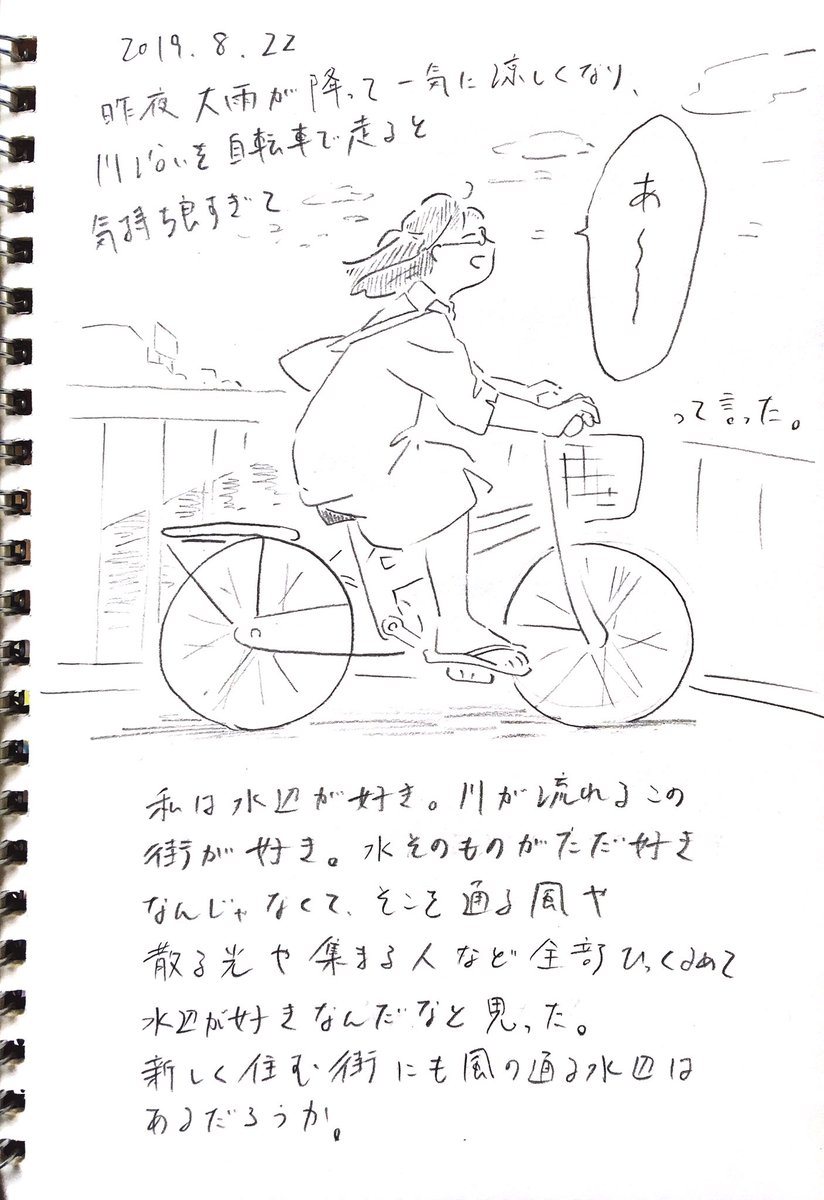 2019.8.22
昨夜大雨が降って一気に涼しくなり、
川沿いを自転車で走ると
気持ち良すぎて
あ〜〜
って言った。
私は水辺が好き。川が流れるこの
街が好き。水そのものがただ好き
なんじゃなくて、そこを通る風や
散る光や集まる人など全部ひっくるめて
水辺が好きなんだなと思った。
新しく住む街にも風の通る水辺は
あるだろうか。